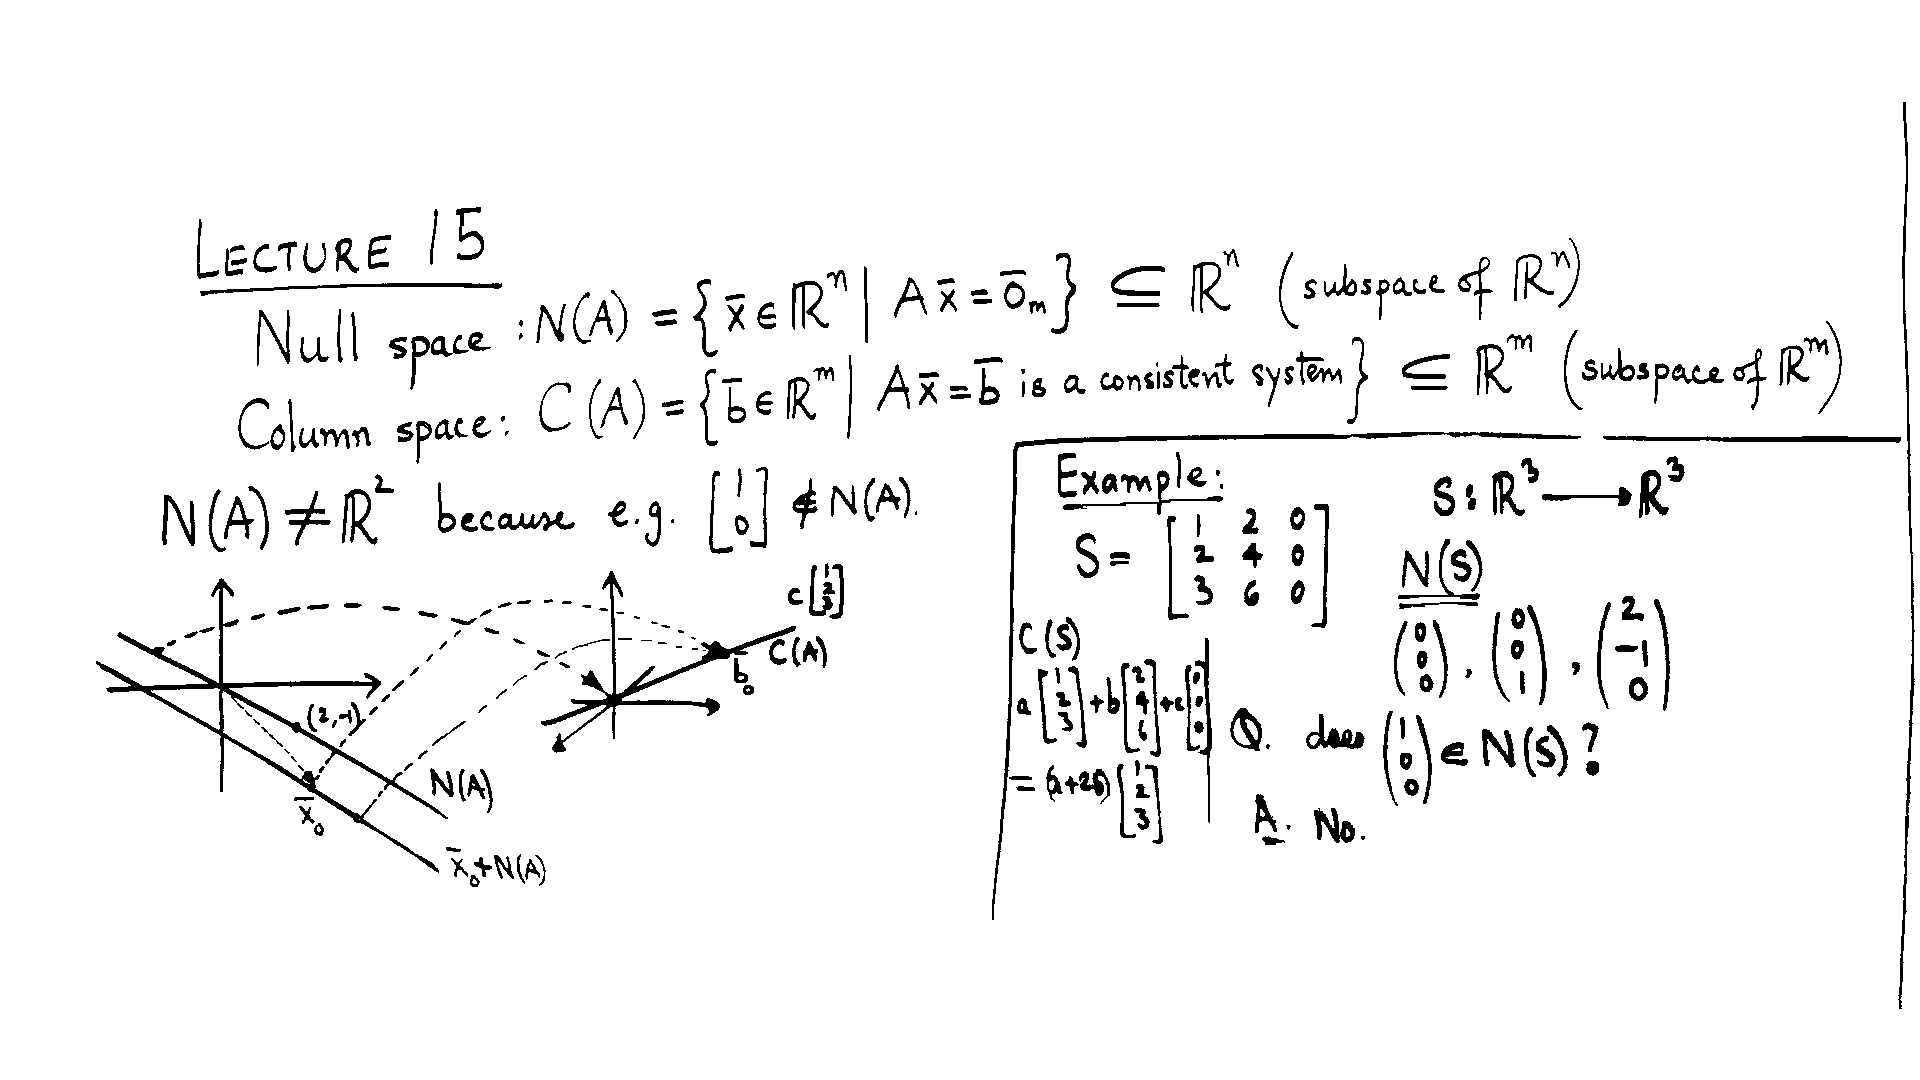 LECTURE 15
Null space : N(A) = { x̄ ∈ ℝⁿ | A x̄ = 0̄ₘ } ⊆ ℝⁿ (subspace of ℝⁿ)
Column space: C(A) = { b̄ ∈ ℝᵐ | A x̄ = b̄ is a consistent system } ⊆ ℝᵐ (subspace of ℝᵐ)
N(A) ≠ ℝ² because e.g. [1 0] ∉ N(A).
c [1 2 3]
C(A)
b̄₀
(2,-1)
N(A)
x̄₀
x̄₀+N(A)
Example:
S: ℝ³ → ℝ³
S = [1 2 0
2 4 0
3 6 0]
N(S)
(0 0 0), (0 0 1), (2 -1 0)
C(S)
a [1 2 3] + b [2 4 6] + c [0 0 0]
= (a+2b) [1 2 3]
Q. does (1 0 0) ∈ N(S) ?
A. No.